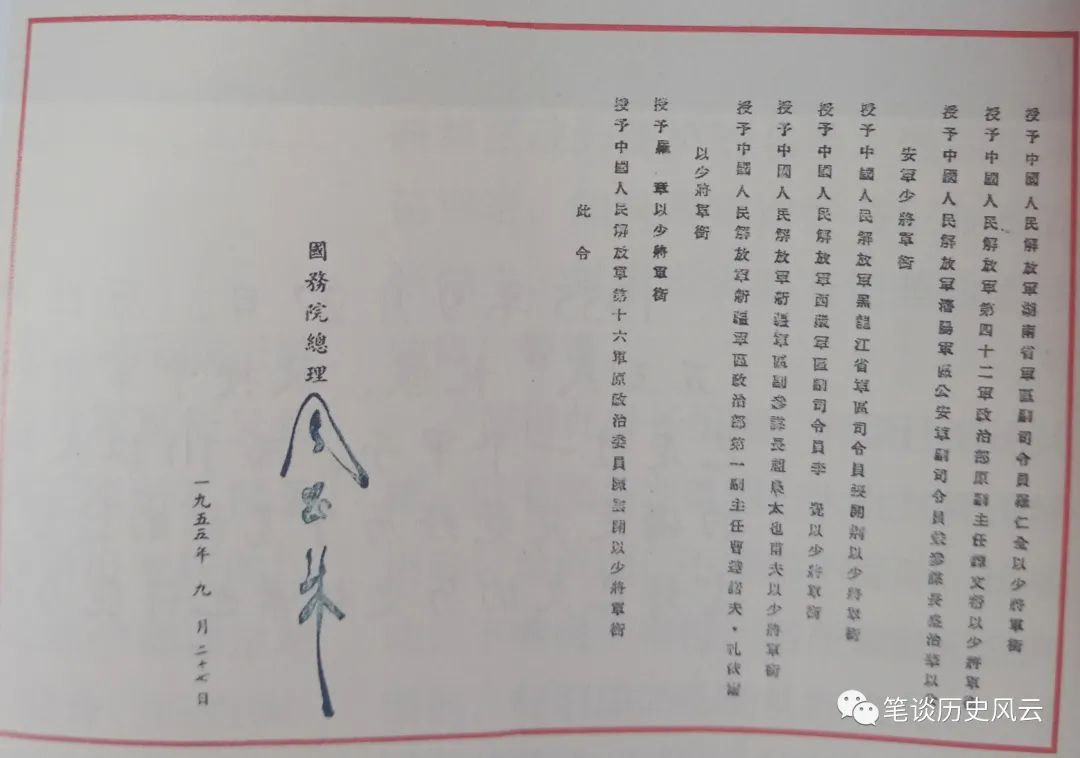 授予中國人民解放軍湖南省軍區副司令員羅仁全以少將軍銜
授予中國人民解放軍第四十二軍政治部原副主任譚文以少將軍
授予中國人民解放軍瀋陽軍區公安軍副司令員兼參謀長盛治華以公
安軍少將軍銜
授予中國人民解放軍黑龍江省軍區司令員張開荊以少將軍銜
授予中國人民解放軍西藏軍區副司令員李 覺以少將軍銜
授予中國人民解放軍新疆軍區副參謀長祖太也甫夫以少將軍銜
授予中國人民解放軍新疆軍區政治部第一副主任曹達諾夫·扎依爾
以少將軍銜
授予羅 章以少將軍銜
授予中國人民解放軍第十六軍原政治委員陳雲開以少將軍銜
此令
國務院總理 周恩來
一九五五年 九 月二十七日
笔谈历史风云